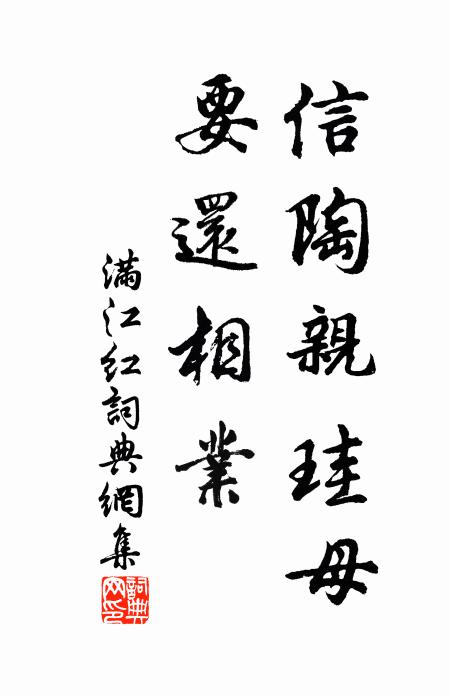 信陶親珪母
要還相業
滿江紅詞典網集
詞典网印